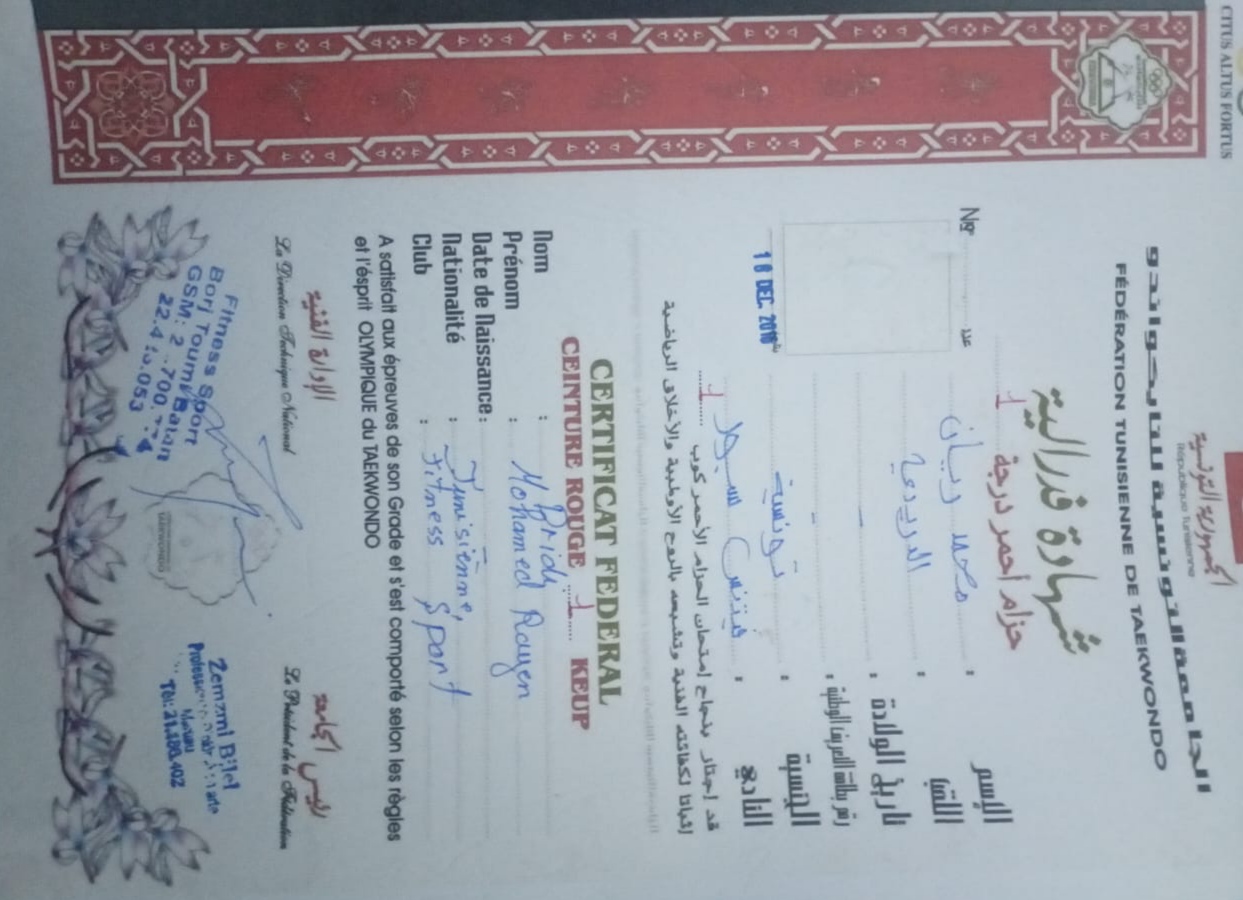 CITUS ALTUS FORTUS
الجمهورية التونسية
République Tunisienne
الجامعة التونسية للتايكواندو
FÉDÉRATION TUNISIENNE DE TAEKWONDO
شهادة فدرالية
حزام أحمر درجة 1
N° عدد
الإسم : محمد ريان
اللقب : الدريدي
تاريخ الولادة : -
رقم بطاقة التعريف الوطنية : -
الجنسية : تونسية
النادي : فيتنس سبور
18 DEC. 2018
قد إجتاز بنجاح إمتحان الحزام الأحمر كوب 1
إثباتا لكفائته الفنية وتشبعه بالروح الأولمبية والأخلاق الرياضية
CERTIFICAT FEDERAL
CEINTURE ROUGE 1 KEUP
Nom : Dridi
Prénom : Mohamed Rayen
Date de Naissance :
Nationalité : Tunisienne
Club : Fitness Sport
A satisfait aux épreuves de son Grade et s'est comporté selon les règles
et l'ésprit OLYMPIQUE du TAEKWONDO
الإدارة الفنية رئيس الجامعة
La Direction Technique National Le Président de la Fédération
Fitness Sport
Borj Toumi Batan
GSM: 2
22.4 .053
TAEKWONDO
Zemzmi Bilel
Tél: 21.180.402